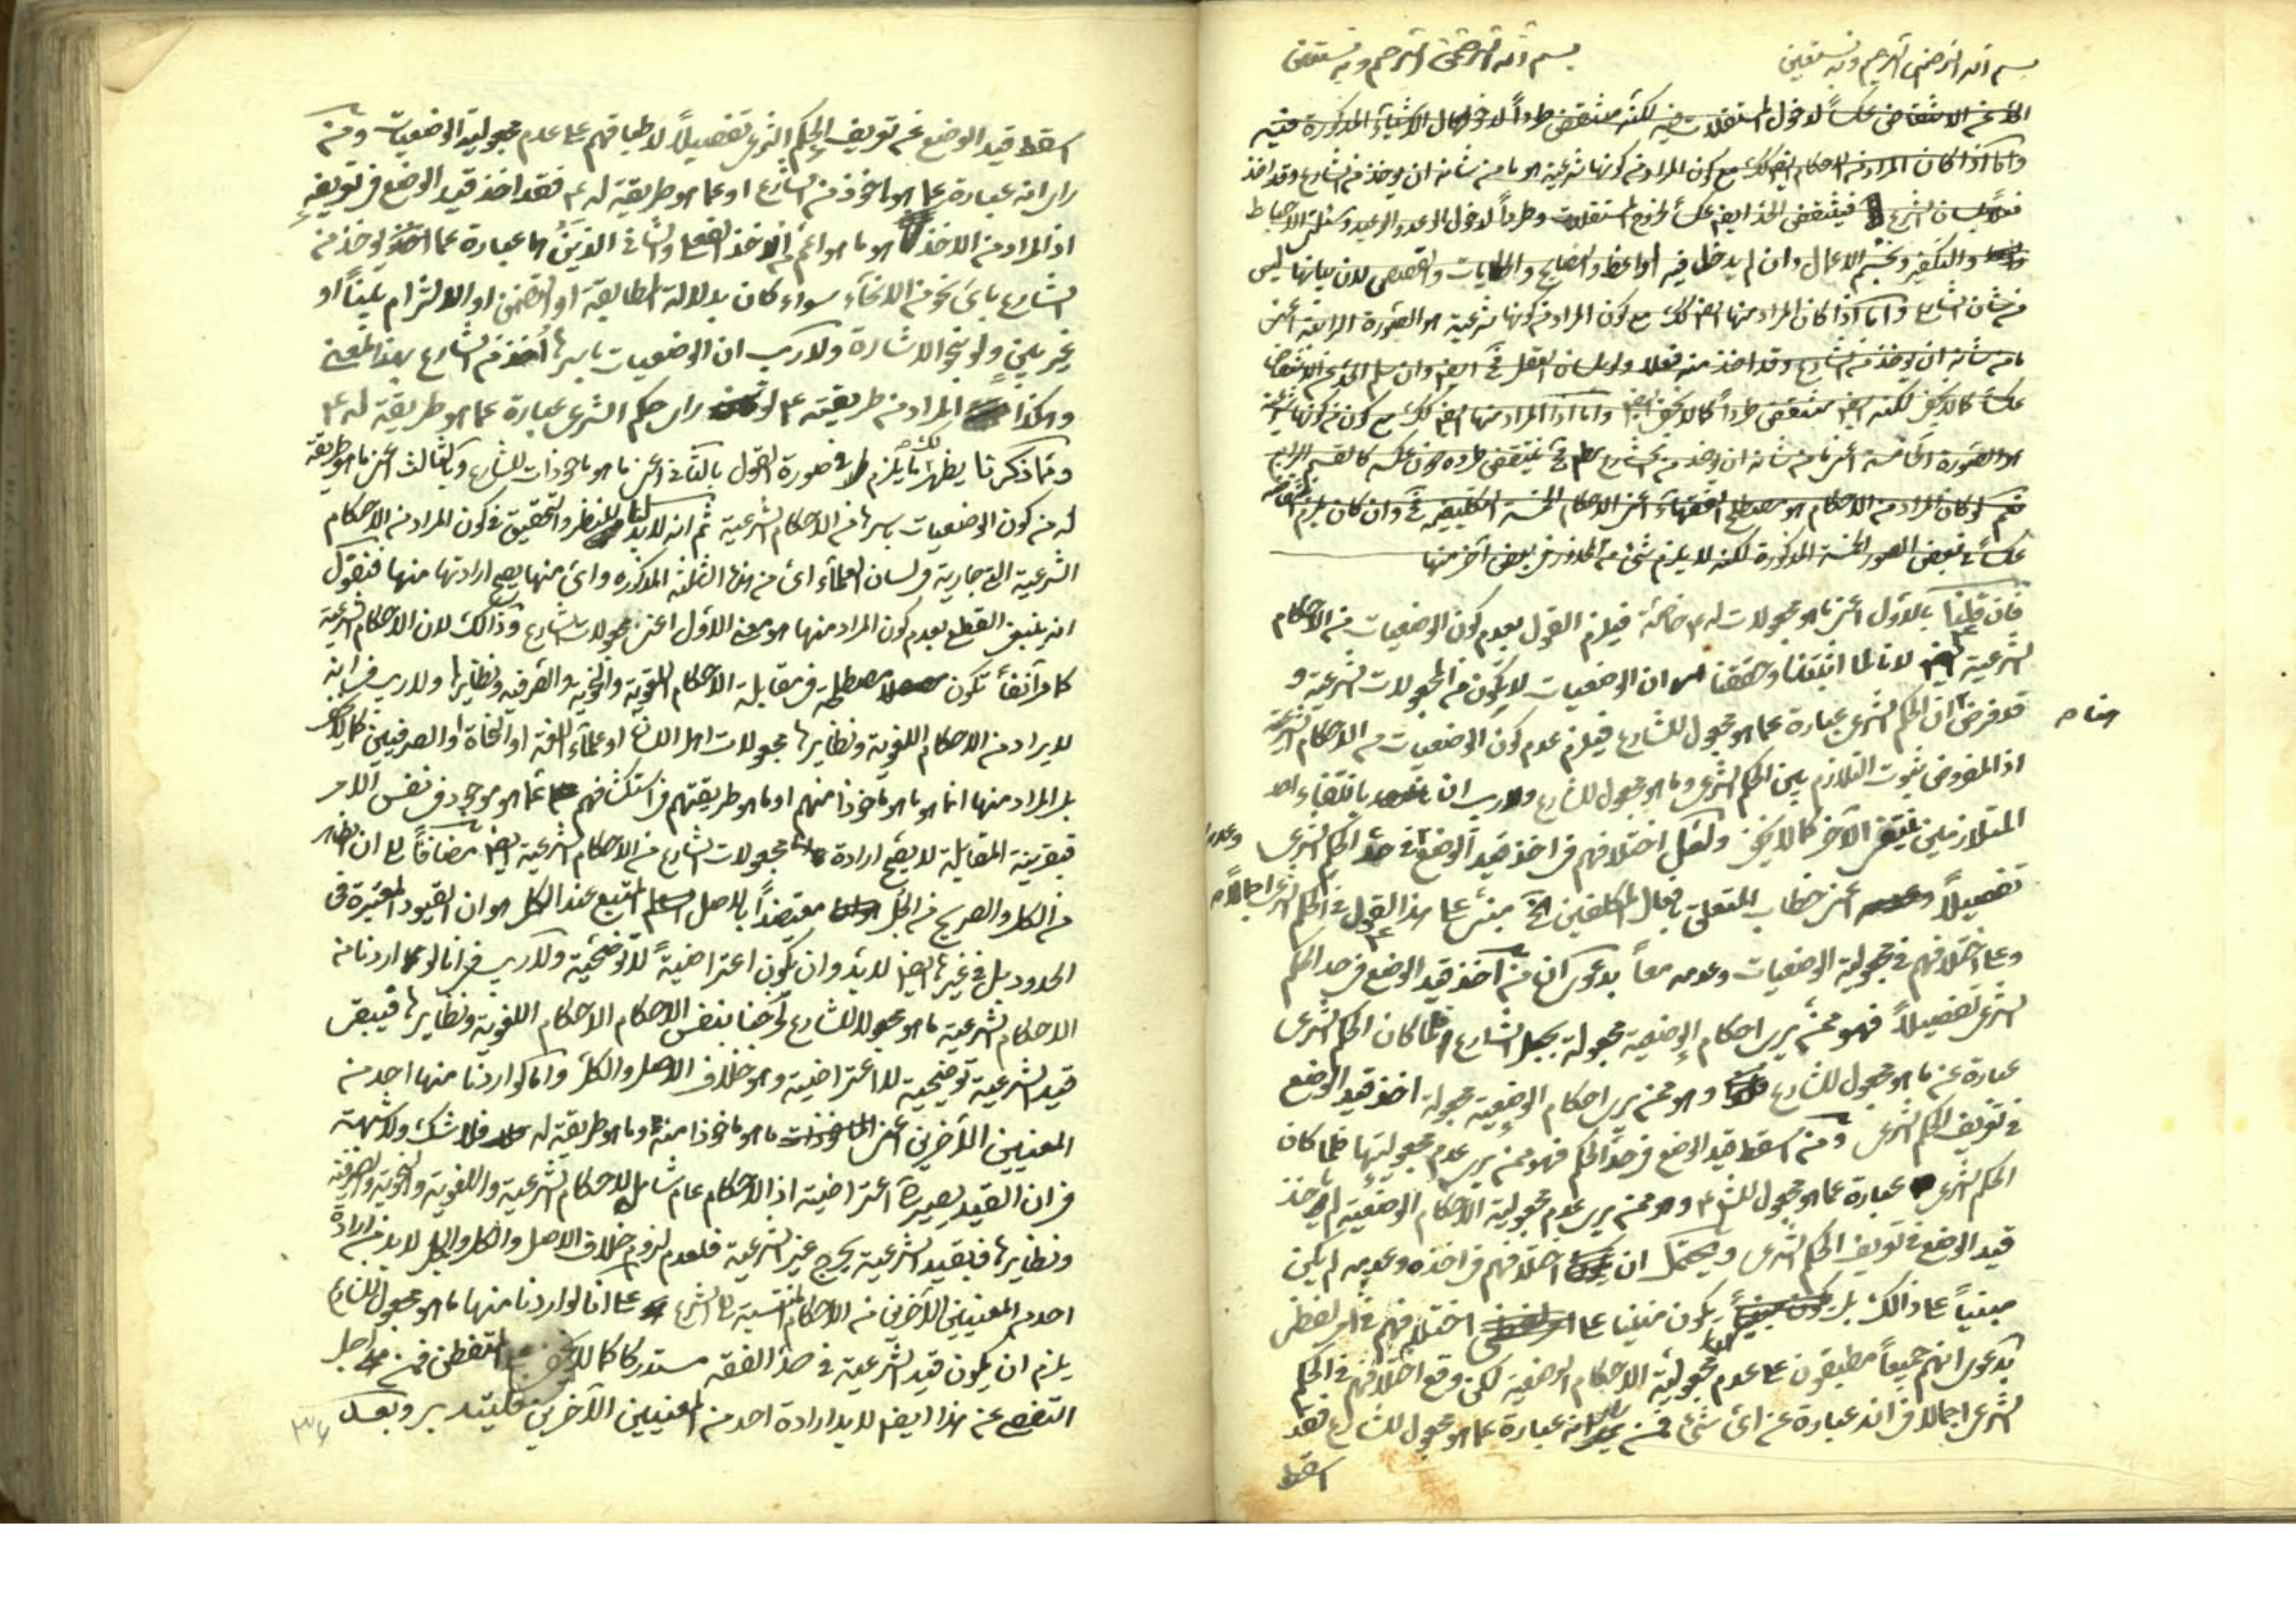 بسم الله الرحمن الرحيم وبه نستعين
بسم الله الرحمن الرحيم وبه نستعين
عكسا لدخول المستقلات فيه لكنه منتقض طردا لدخول الاشياء المذكورة فيه
واما اذا كان المراد من الاحكام ايضا كك مع كون المراد من كونها شرعية هو ما من شانه ان يؤخذ من الشارع وقد اخذ
فعلا بلسان الشرع فينتقض الحد ايضا عكسا لخروج المستقلات وطردا لدخول الوعد والوعيد ومسئلة الاحباط
والتكفير وتجسم الاعمال وان لم يدخل فيه المواعظ والنصايح والحكايات والقصص لان بيانها ليس
من شان الشارع واما اذا كان المراد منها ايضا كك مع كون المراد من كونها شرعية هو الصورة الرابعة اعنى
ما من شانه ان يؤخذ من الشارع وقد اخذ منه فعلا ولو بلسان العقل ايضا وان سلم الحد عن الانتقاض
عكسا كما لا يخفى لكنه ايضا منتقض طردا كما لا يخفى واما اذا المراد منها ايضا كك مع كون من كونها شرعية
هو الصورة الخامسة اعنى ما من شانه ان يؤخذ من الشارع فينتقض طرده دون عكسه كالقسم الرابع
نعم لو كان المراد من الاحكام هو مصطلح الفقهاء اعنى الاحكام الخمسة التكليفية وان كان يلزم انتقاضه
عكسا في بعض الصور الخمسة المذكورة لكنه لا يلزم شئ من المحذور في بعض آخر منها
فان قلنا بالاول اعنى ما هو مجعولات له خاصة فيلزم القول بعدم كون الوضعيات من الاحكام
الشرعية لانا لما اثبتنا وحققنا ان الوضعيات لا يكون من المجعولات الشرعية و
قد فرض ان الحكم الشرعى عبارة عما هو مجعول للشارع فيلزم عدم كون الوضعيات من الاحكام الشرعية
اذ المفروض ثبوت التلازم بين الحكم الشرعى وما هو مجعول للشارع ولا ريب ان بانتفاء احد
المتلازمين ينتفى الآخر كما لا يخفى ولعل اختلافهم فى اخذ قيد الوضع فى حد الحكم الشرعى وعدمه
تفصيلا اعنى خطاب المتعلق بافعال المكلفين الخ مبنى على هذا القول فى الحكم الشرعى اجمالا
وعلى اختلافهم فى مجعولية الوضعيات وعدمه معا بدعوى ان من اخذ قيد الوضع فى حد الحكم
الشرعى تفصيلا فهو ممن يرى احكام الوضعية مجعولة بجعل الشارع فلما كان الحكم الشرعى
عبارة عن ما هو مجعول للشارع وهو ممن يرى احكام الوضعية مجعولة اخذ قيد الوضع
فى تعريف الحكم الشرعى ومن اسقط قيد الوضع فى حد الحكم فهو ممن يرى عدم مجعوليتها فلما كان
الحكم الشرعى عبارة عما هو مجعول للشارع وهو ممن يرى عدم مجعولية الاحكام الوضعية لم ياخذ
قيد الوضع فى تعريف الحكم الشرعى ويحتمل ان اختلافهم فى اخذه وعدمه لم يكن
مبنيا على ذالك بل يكون مبنيا على اختلافهم فى امر لفظى
بدعوى انهم جميعا مطبقون على عدم مجعولية الاحكام الوضعية لكن وقع اختلافهم فى الحكم
الشرعى اجمالا فى انه عبارة عن اى شئ فمن يرى انه عبارة عما هو مجعول للشارع فقد
اسقط
اسقط قيد الوضع عن تعريف الحكم الشرعى تفصيلا لاطباقهم على عدم مجعولية الوضعيات ومن
راى انه عبارة عما هو ماخوذ من الشارع او عما هو طريقة له فقد اخذ قيد الوضع فى تعريفه
اذ المراد من الاخذ هو ما هو اعم من الاخذ الفعلى والشانى الذين هما عبارة عما يؤخذ من
الشارع باى نحو من الانحاء سواء كان بدلالة المطابقة او التضمن او الالتزام بينا او
غير بين ولو بنحو الاشارة ولا ريب ان الوضعيات باسرها اخذ من الشارع بهذا المعنى
وهكذا المراد من طريقته لو راى حكم الشرعى عبارة عما هو طريقة له
ومما ذكرنا يظهر لك ما يلزم فى صورة القول بالثانى اعنى ما هو ماخوذات للشارع وبالثالث اعنى ما هو طريقة
له من كون الوضعيات باسرها من الاحكام الشرعية ثم انه لا بد لنا النظر والتحقيق فى كون المراد من الاحكام
الشرعية التى جارية فى لسان العلماء اى من هذه الثلثة المذكوره واى منها يصح ارادتها منها فنقول
انه ينبغى القطع بعدم كون المراد منها هو معنى الاول اعنى مجعولات الشارع وذالك لان الاحكام الشرعية
كما مر آنفا تكون مصطلحة فى مقابلة الاحكام اللغوية والنحوية والصرفية ونظايرها ولا ريب فى انه
لا يراد من الاحكام اللغوية ونظايرها مجعولات اهل اللسان او علماء اللغة او النحاة او الصرفيين كما لا يخفى
بل المراد منها انما هو ما هو ماخوذا منهم او ما هو طريقتهم فى استكشافهم عما هو موجود فى نفس الامر
فبقرينة المقابلة لا يصح ارادة مجعولات الشارع من الاحكام الشرعية ايضا مضافا الى ان الظاهر
من الكل والصريح من الجل معتضدا بالاصل المتبع عند الكل هو ان القيود المعتبرة فى
الحدود بل فى غيرها ايضا لا بد وان يكون احترازية لا توضيحية ولا ريب فى انا لو اردنا من
الاحكام الشرعية ما هو مجعولا للشارع لخرجنا بنفس الاحكام الاحكام اللغوية ونظايرها فيبقى
قيد الشرعية توضيحية لا احترازية وهو خلاف الاصل والكل واما لو اردنا منها احد من
المعنيين الآخرين اعنى ما هو ماخوذا منه وما هو طريقة له فلا شك ولا شبهة
فى ان القيد يصير احترازية اذ الاحكام عام شامل للاحكام الشرعية واللغوية والنحوية والصرفية
ونظايرها فبقيد الشرعية يخرج غير الشرعية فلعدم لزوم خلاف الاصل والكل والجل لا بد من ارادة
احد من المعنيين الآخرين من الاحكام المنتسبة الى الشرع على انا لو اردنا منها ما هو مجعول للشارع
يلزم ان يكون قيد الشرعية فى حد الفقه مستدركا كما لا يخفى على المتفطن فمن اجل
التفصى عن هذا ايضا لا بد ارادة احد من المعنيين الآخرين فليتدبر وبعد